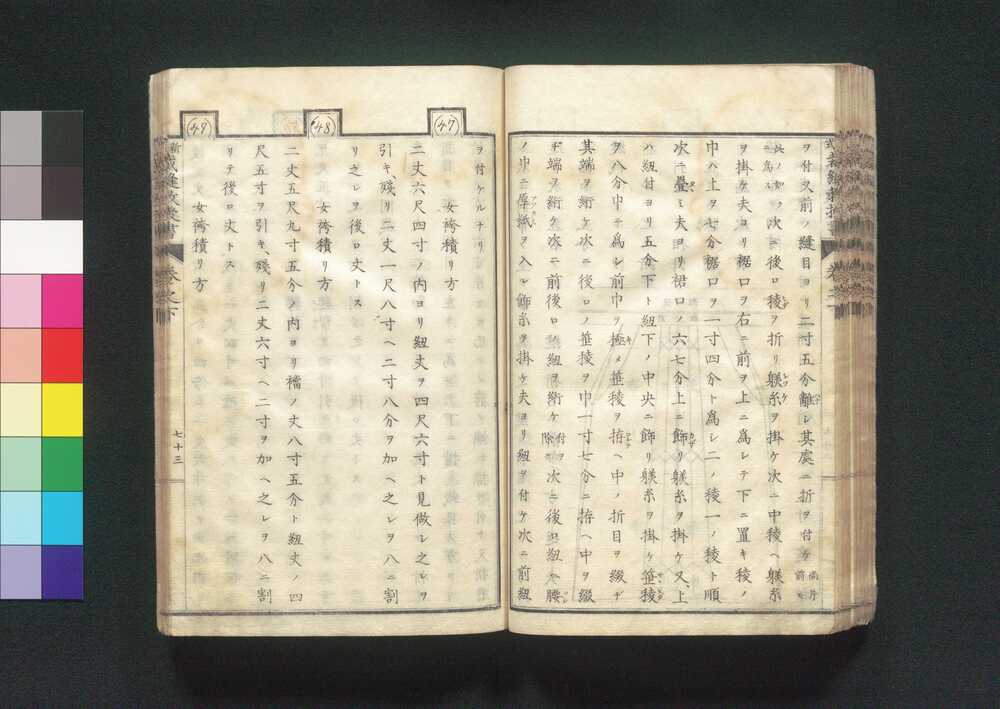 ヲ付ケ又前ノ縫目ヨリ二寸五分離レ其處ニ折ヲ付ケ尚片前モ
此ノ如クニ為ス次ニ後口稜ヲ折リ躾糸ヲ掛ケ次ニ中稜ヘ躾糸
ヲ掛ケ夫ヨリ裾口ヲ右ニ前ヲ上ニ為シテ下ニ置キ稜ノ
巾ハ上ヲ七分裾口ヲ一寸四分ト為シ二ノ稜一ノ稜ト順
次ニ疊ミ夫ヨリ裾口ノ六七分上ニ飾リ躾糸ヲ掛ケ又上
ハ紐付ヨリ五分下ト紐下ノ中央ニ飾リ躾糸ヲ掛ケ笹稜
ヲ八分巾ニ為シ前巾ヲ極メ笹稜ヲ拵ヘ中ノ折目ヲ綴ヂ
其端ヲ絎ケ次ニ後口ノ笹稜ヲ巾一寸七分ニ拵ヘ中ヲ綴
ヂ端ヲ絎ケ次ニ前後口ノ紐ヲ絎ケ付ヲ除ク次ニ後口紐ヘ腰
ノ巾ニ厚紙ヲ入レ飾糸ヲ掛ケ夫ヨリ紐ヲ付ケ次ニ前紐
ヲ付ケルナリ
(47)
女袴積リ方
二丈六尺四寸ノ内ヨリ紐丈ヲ四尺六寸ト見做シ之レヲ
引キ、殘リ二丈一尺八寸ヘ二寸八分ヲ加ヘ之レヲ八ニ割
リ之レヲ後口丈トス
(48)
女袴積リ方
二丈五尺九寸五分ノ内ヨリ襠ノ丈八寸五分ト紐丈ノ四
尺五寸ヲ引キ、殘リ二丈六寸ヘ二寸ヲ加ヘ之レヲ八ニ割
リテ後口丈トス
(49)
女袴積リ方
卷之下
七十三